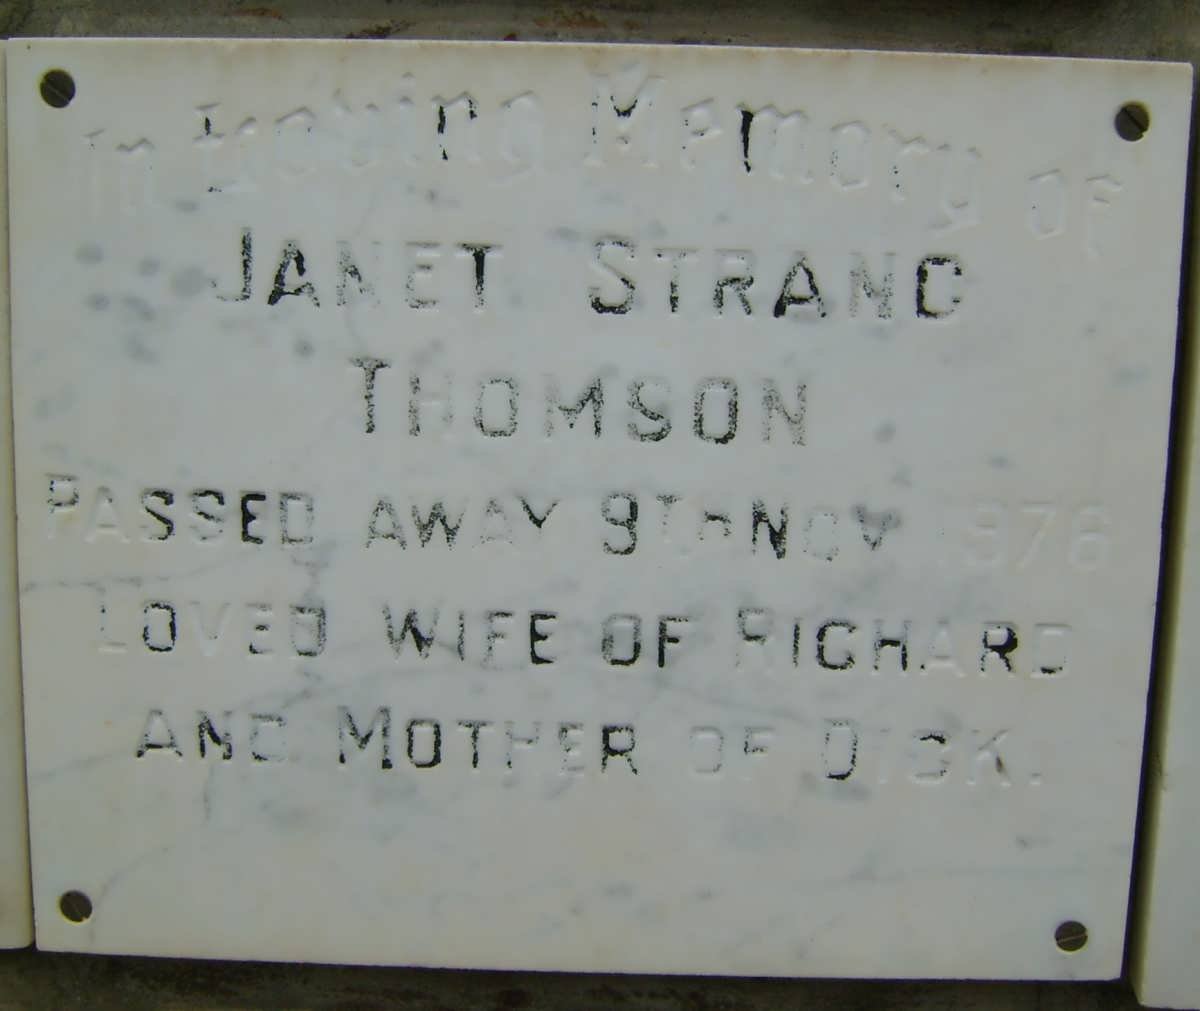 In Loving Memory of
JANET STRANG
THOMSON
PASSED AWAY 9TH NOV. 1976
LOVED WIFE OF RICHARD
AND MOTHER OF DICK.